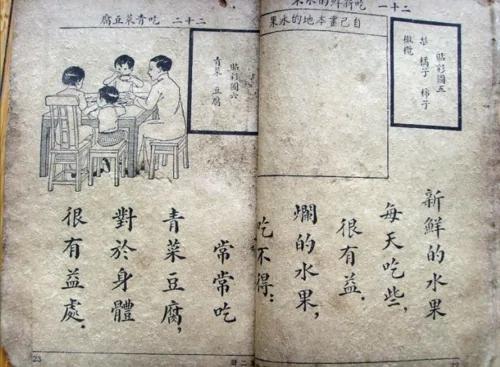 二十一 吃新鮮的水果
貼彩圖五
梨 橘子 柿子
橄欖
自己畫本地的水果
新鮮的水果
每天吃些,
很有益.
爛的水果,
吃不得:
二十二 吃青菜豆腐
貼彩圖六
青菜 豆腐
常常吃
青菜豆腐,
對於身體
很有益處.
23